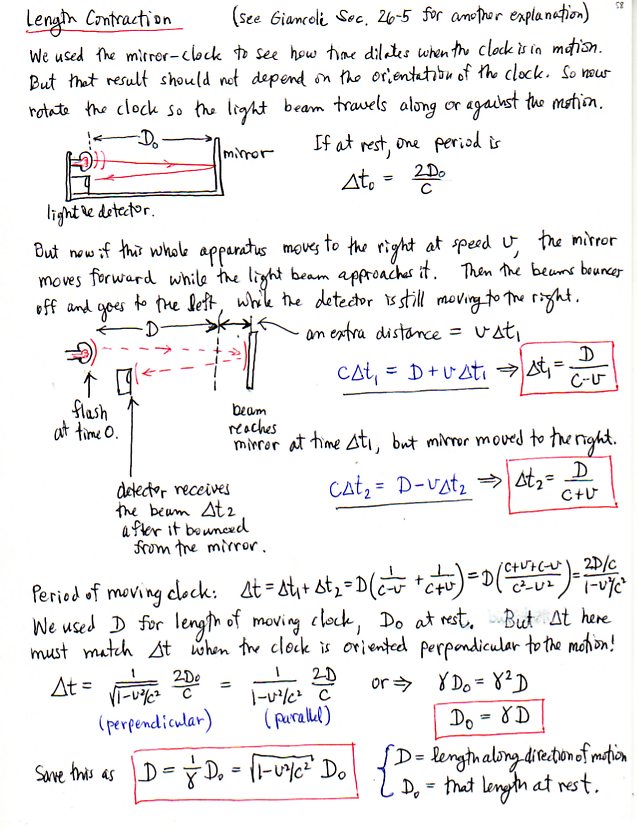 Length Contraction (see Giancoli Sec. 26-5 for another explanation)
58
We used the mirror-clock to see how time dilates when the clock is in motion.
But that result should not depend on the orientation of the clock. So now
rotate the clock so the light beam travels along or against the motion.
D₀
mirror
If at rest, one period is
Δt₀ = 2D₀/C
light & detector.
But now if this whole apparatus moves to the right at speed v, the mirror
moves forward while the light beam approaches it. Then the beam bounces
off and goes to the left, while the detector is still moving to the right.
D
an extra distance = vΔt₁
CΔt₁ = D + vΔt₁ ⇒ Δt₁ = D/(C-v)
flash
at time 0.
beam
reaches
mirror at time Δt₁, but mirror moved to the right.
detector receives
the beam Δt₂
after it bounced
from the mirror.
CΔt₂ = D - vΔt₂ ⇒ Δt₂ = D/(C+v)
Period of moving clock: Δt = Δt₁ + Δt₂ = D(1/(C-v) + 1/(C+v)) = D((C+v+C-v)/(C²-v²)) = (2D/C)/(1-v²/C²)
We used D for length of moving clock, D₀ at rest. But Δt here
must match Δt when the clock is oriented perpendicular to the motion!
Δt = 1/√(1-v²/C²) 2D₀/C = 1/(1-v²/C²) 2D/C or ⇒ γD₀ = γ²D
(perpendicular) (parallel)
D₀ = γD
Save this as D = 1/γ D₀ = √(1-v²/C²) D₀
{ D = length along direction of motion
D₀ = that length at rest.